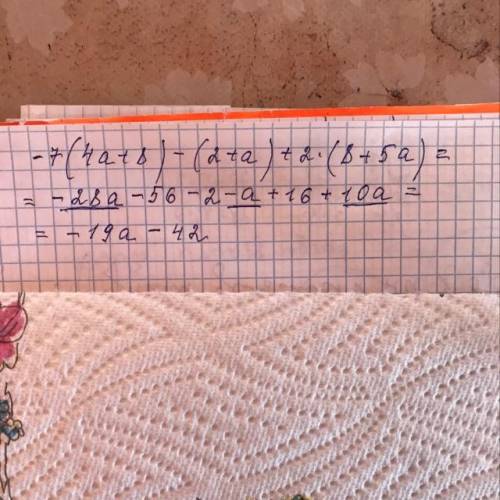 -7(4a+8)-(2+a)+2·(8+5a)=
= -28a-56-2-a+16+10a=
= -19a-42